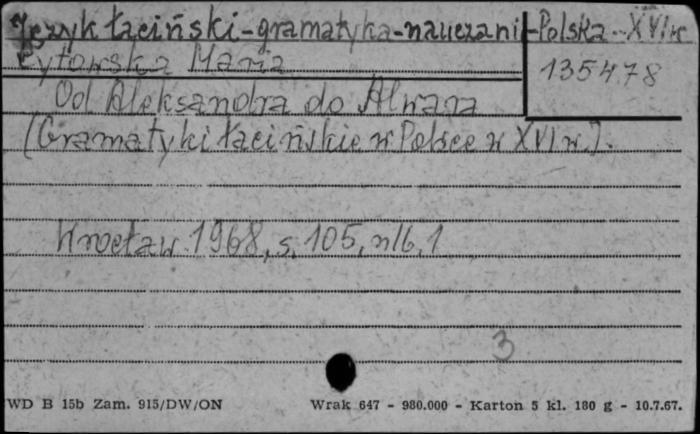 Język łaciński-gramatyka-nauczanie-Polska-XVIw
Cytowska Maria
135478
Od Aleksandra do Alwara
(Gramatyki łacińskie w Polsce w XVI w.).
Wrocław 1968, s. 105, nlb. 1
3
WD B 15b Zam. 915/DW/ON Wrak 647 - 980.000 - Karton 5 kl. 180 g - 10.7.67.